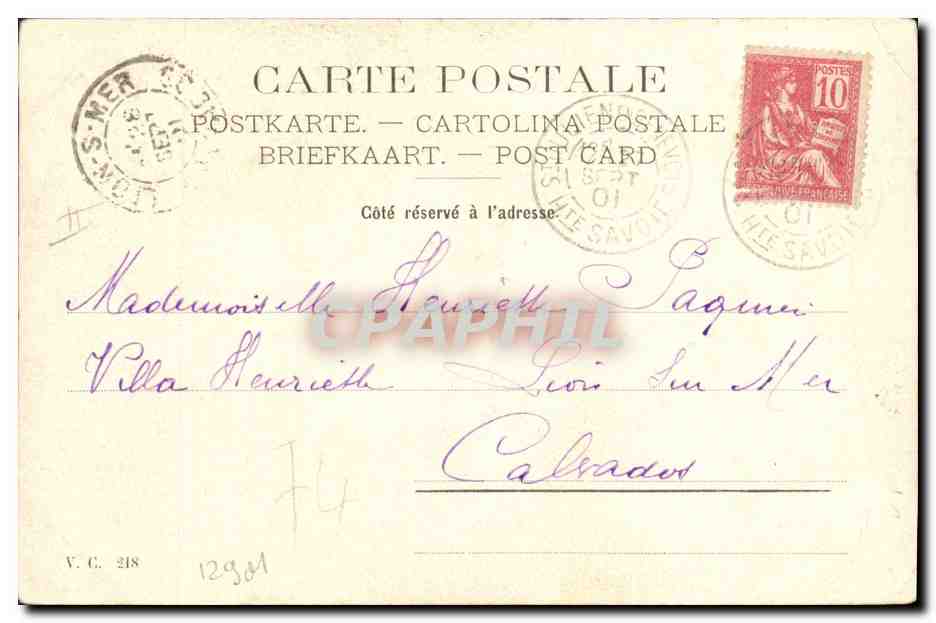 CARTE POSTALE
POSTKARTE. — CARTOLINA POSTALE
BRIEFKAART. — POST CARD
Côté réservé à l'adresse.
POSTES
10
RÉPUBLIQUE FRANÇAISE
S-MER
SEPT
SEPT
01
HTE SAVOIE
01
HTE SAVOIE
Mademoiselle Henriette
Villa Henriette Lion Sur Mer
Calvados
CPAPHIL
74
V. C. 218
12901